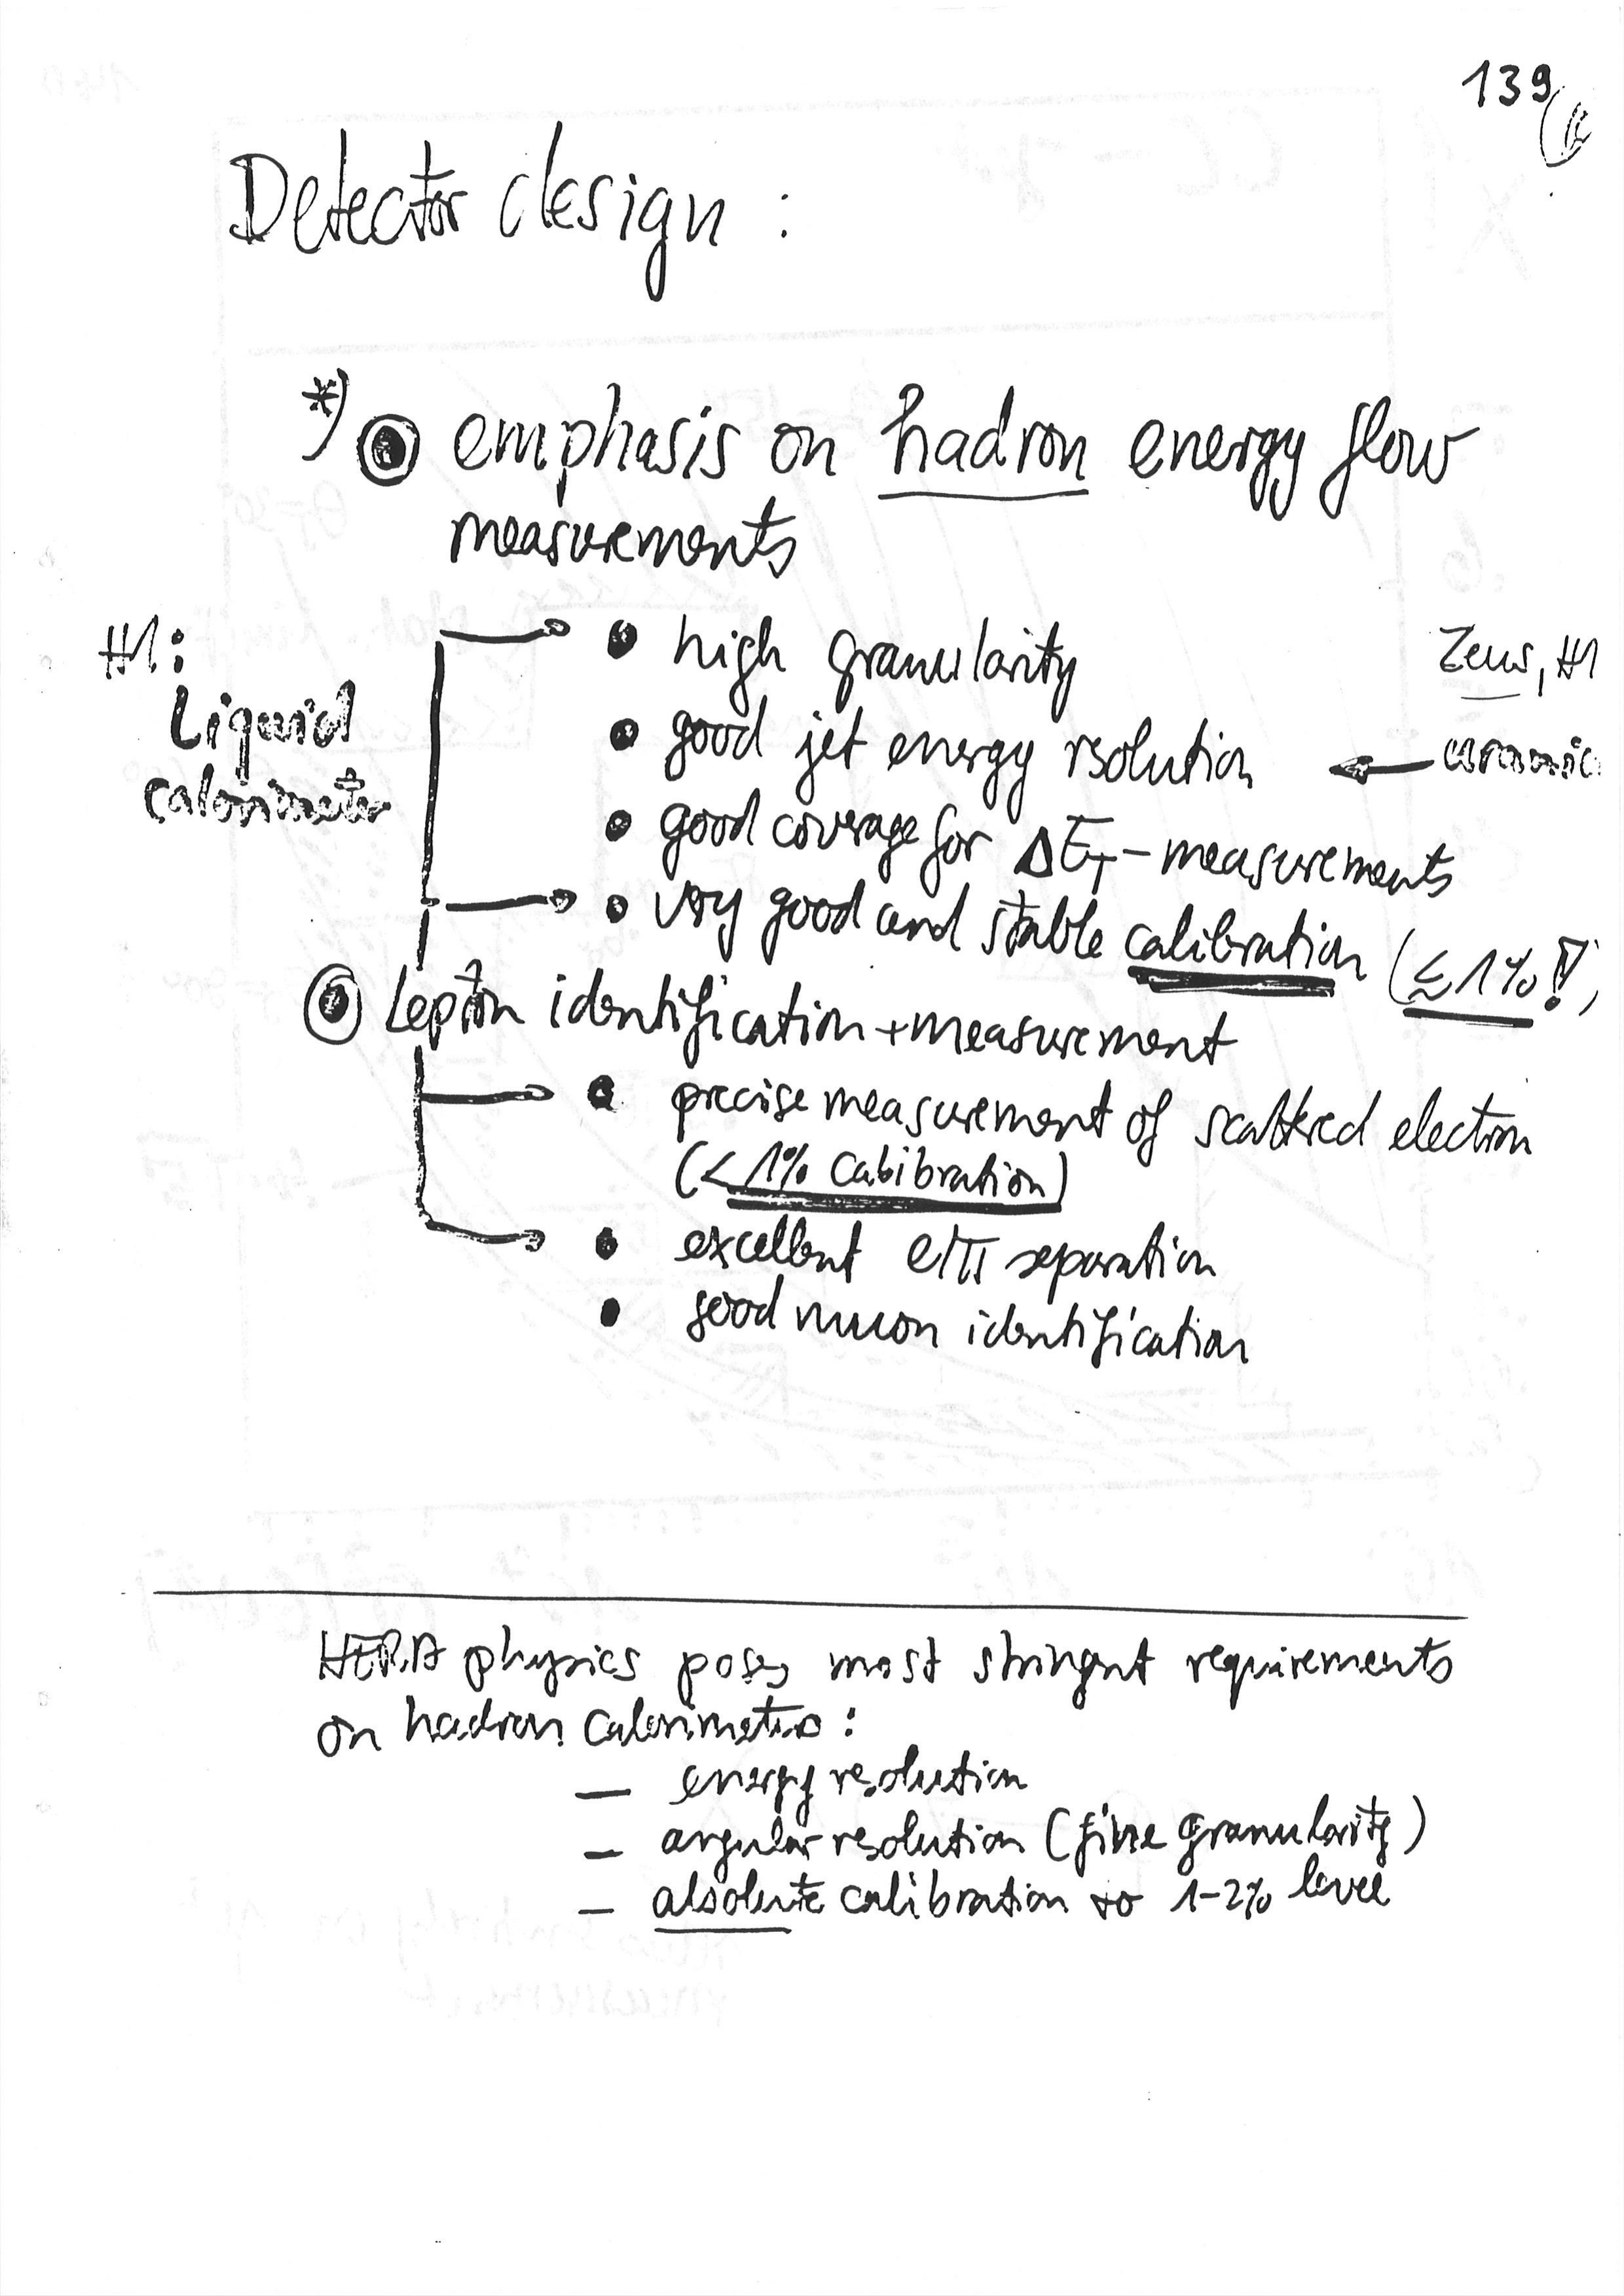 139
Detector design :
*) emphasis on hadron energy flow
measurements
H1:
Liquid
calorimeter
• high granularity
• good jet energy resolution
Zeus, H1
←
• good coverage for ΔE_T - measurements
• very good and stable calibration (≲ 1% !)
Lepton identification + measurement
• precise measurement of scattered electron
(< 1% calibration)
• excellent e/π separation
• good muon identification
HERA physics poses most stringent requirements
on hadron calorimeters :
— energy resolution
— angular resolution (fine granularity)
— absolute calibration to 1-2% level